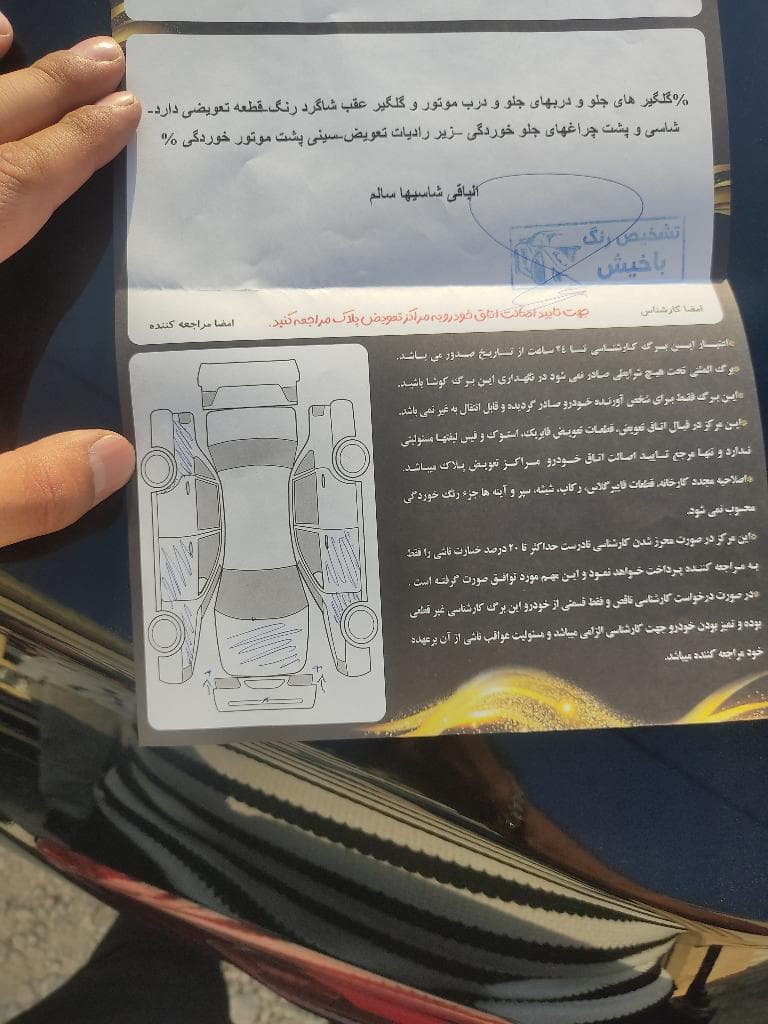 %گلگیر های جلو و دربهای جلو و درب موتور و گلگیر عقب شاگرد رنگ-قطعه تعویضی دارد-
شاسی و پشت چراغهای جلو خوردگی -زیر رادیات تعویض-سینی پشت موتور خوردگی %
الباقی شاسیها سالم
تشخیص رنگ
باخیش
امضا کارشناس
جهت تایید اصالت اتاق خودرو به مراکز تعویض پلاک مراجعه کنید.
امضا مراجعه کننده
*اعتبار ایـن بـرگ کـارشناسی تـا ۲۴ ساعت از تـاریخ صـدور می بـاشد.
*برگ المثنی تحت هیچ شرایطی صادر نمی شود در نگهداری این برگ کوشا باشید.
*ایـن برگ فقط برای شخص آورنـده خـودرو صادر گردیده و قابل انتقال به غیر نمی باشد.
*ایـن مرکز در قبال اتاق تعویض، قطعات تعویـض فابریک، استوک و فیس لیفتها مسئولیتی
نـدارد و تنها مرجع تـایـیـد اصالت اتاق خـودرو مـراکـز تعویـض پـلاک میبـاشد.
*اصلاحیه مجدد کارخانه، قطعات فایبرگلاس، رکاب، شیشه، سپر و آینه ها جزء رنگ خوردگی
محسوب نمی شود.
*این مرکز در صورت محرز شدن کارشناسی نادرست حداکثر تا ۲۰ درصد خسارت ناشی را فقط
بـه مـراجعه کـننـده پـرداخت خـواهد نمـود و ایـن مهـم مورد توافـق صورت گـرفتـه اسـت .
*در صورت درخواست کارشناسی ناقص و فقط قسمتی از خودرو این برگ کارشناسی غیر قطعی
بوده و تمیز بودن خودرو جهت کارشناسی الزامی میباشد و مسئولیت عواقب ناشی از آن برعهده
خود مراجعه کننده میباشد.